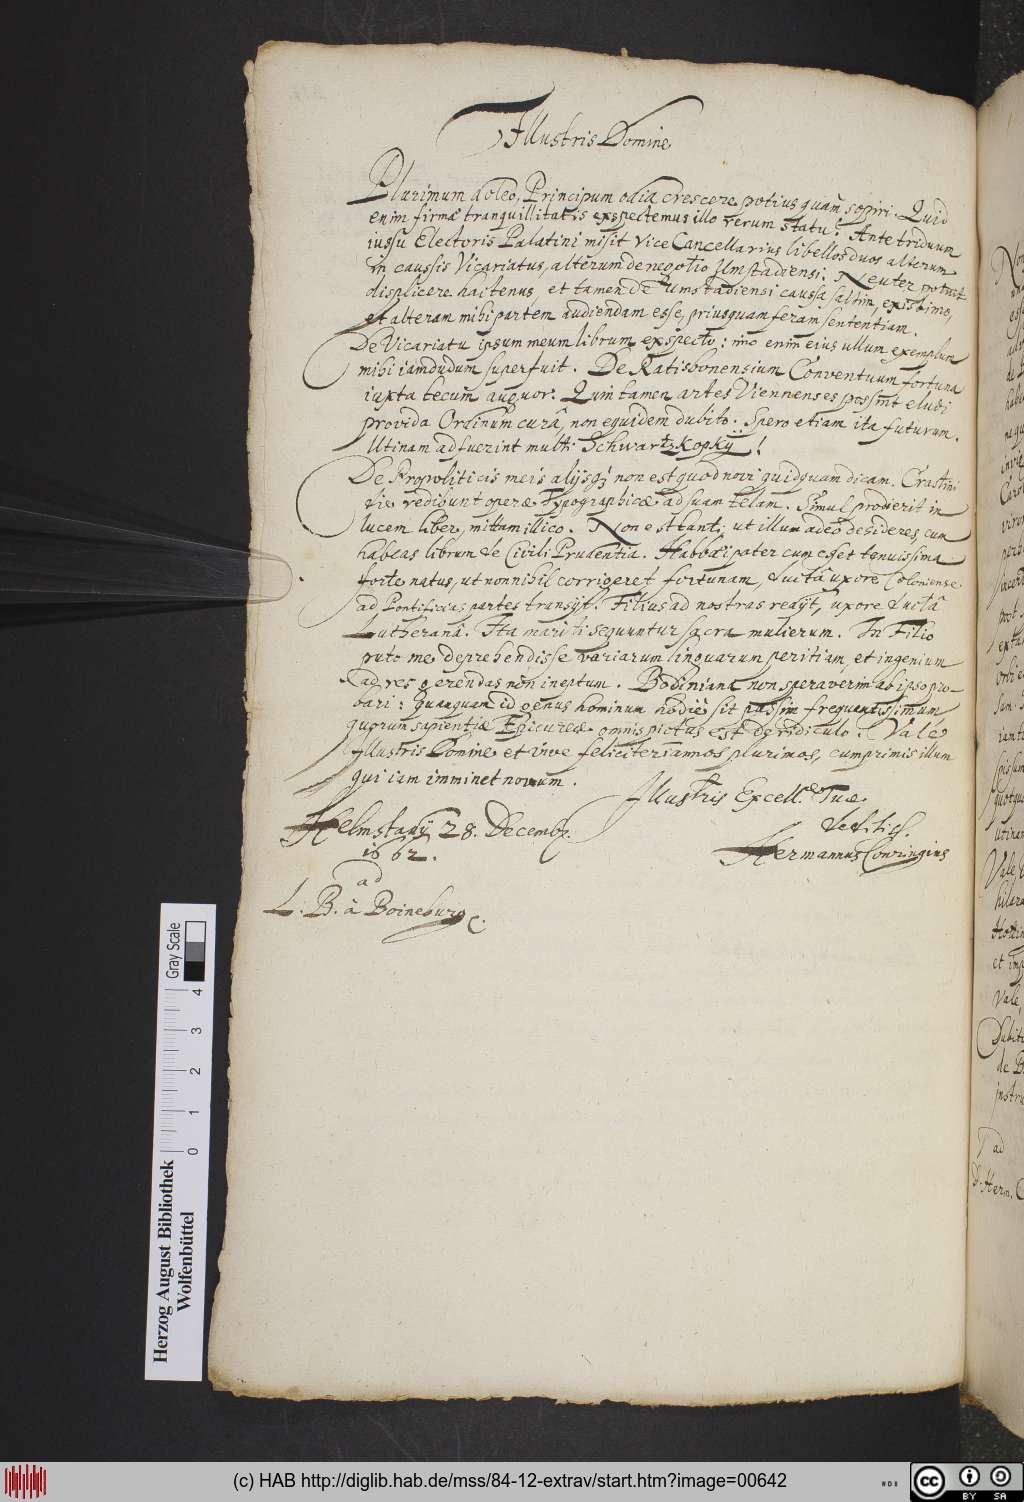 Illustris Domine
Plurimum doleo, Principum odia crescere potius quam sopiri. Quid
enim firmæ tranquillitatis exspectemus illo rerum statu? Ante triduum
iussu Electoris Palatini misit ViceCancellarius libellos duos alterum
in caussis Vicariatus, alterum de negotio Umstadiensi. Neuter potuit
displicere hactenus, et tamen de Umstadiensi caussa saltim, existimo,
et alteram mihi partem audiendam esse, priusquam feram sententiam.
De Vicariatu ipsum meum librum exspecto: enim eius ullum exemplum
mihi iamdudum superfuit. De Ratisbonensium Conventuum fortuna
iuxta tecum auguror. Quin tamen artes Viennenses possint eludi
provida Ordinum curâ, non equidem dubito. Spero etiam ita futurum.
Utinam adfuerint multi Schwartzkopky!
De Propoliticis meis alijsq; non est quod novi quidquam dicam. Crastini
die redibunt operæ Typographicæ ad suam telam. Simul prodierit in
lucem liber, mittam illico. Non est tanti, ut illum adeo desideres, cum
habeas librum de Civili Prudentia. Habbæi pater cum esset tenuissima
forte natus, ut nonnihil corrigeret fortunam, ductâ uxore Coloniense
ad Pontificias partes transijt. Filius ad nostras redijt, uxore ductâ
Lutheranâ. Ita mariti sequuntur sacra mulierum. In Filio
puto me deprehendisse variarum linguarum peritiam, et ingenium
ad res gerendas non ineptum. Bodiniana non speraverim ab ipso pro-
bari: quamquam id genus hominum hodie sit passim frequentissimum
quorum sapientiæ Epicureæ omnis pictus est de ridiculo. Vale
Illustris Domine et vive feliciter annos plurimos, cumprimis illum
qui iam imminet novum.
Illustris Excell.æ Tuæ
Helmstady 28. Decembr.
deditiss.
1662.
Hermannus Conringius
ad
L. B. à Boineburg
Herzog August Bibliothek
Wolfenbüttel
0 1 2 3 4
Gray Scale
(c) HAB http://diglib.hab.de/mss/84-12-extrav/start.htm?image=00642
cc BY SA